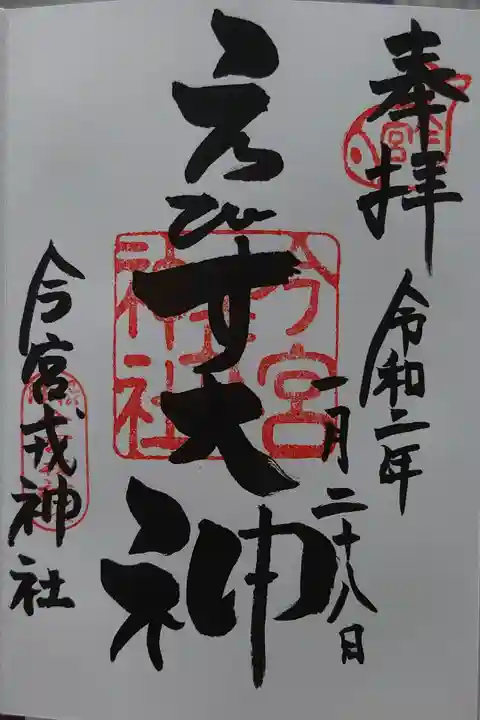 奉拝
令和二年
一月二十八日
えびす大神
今宮戎神社
今宮
神社